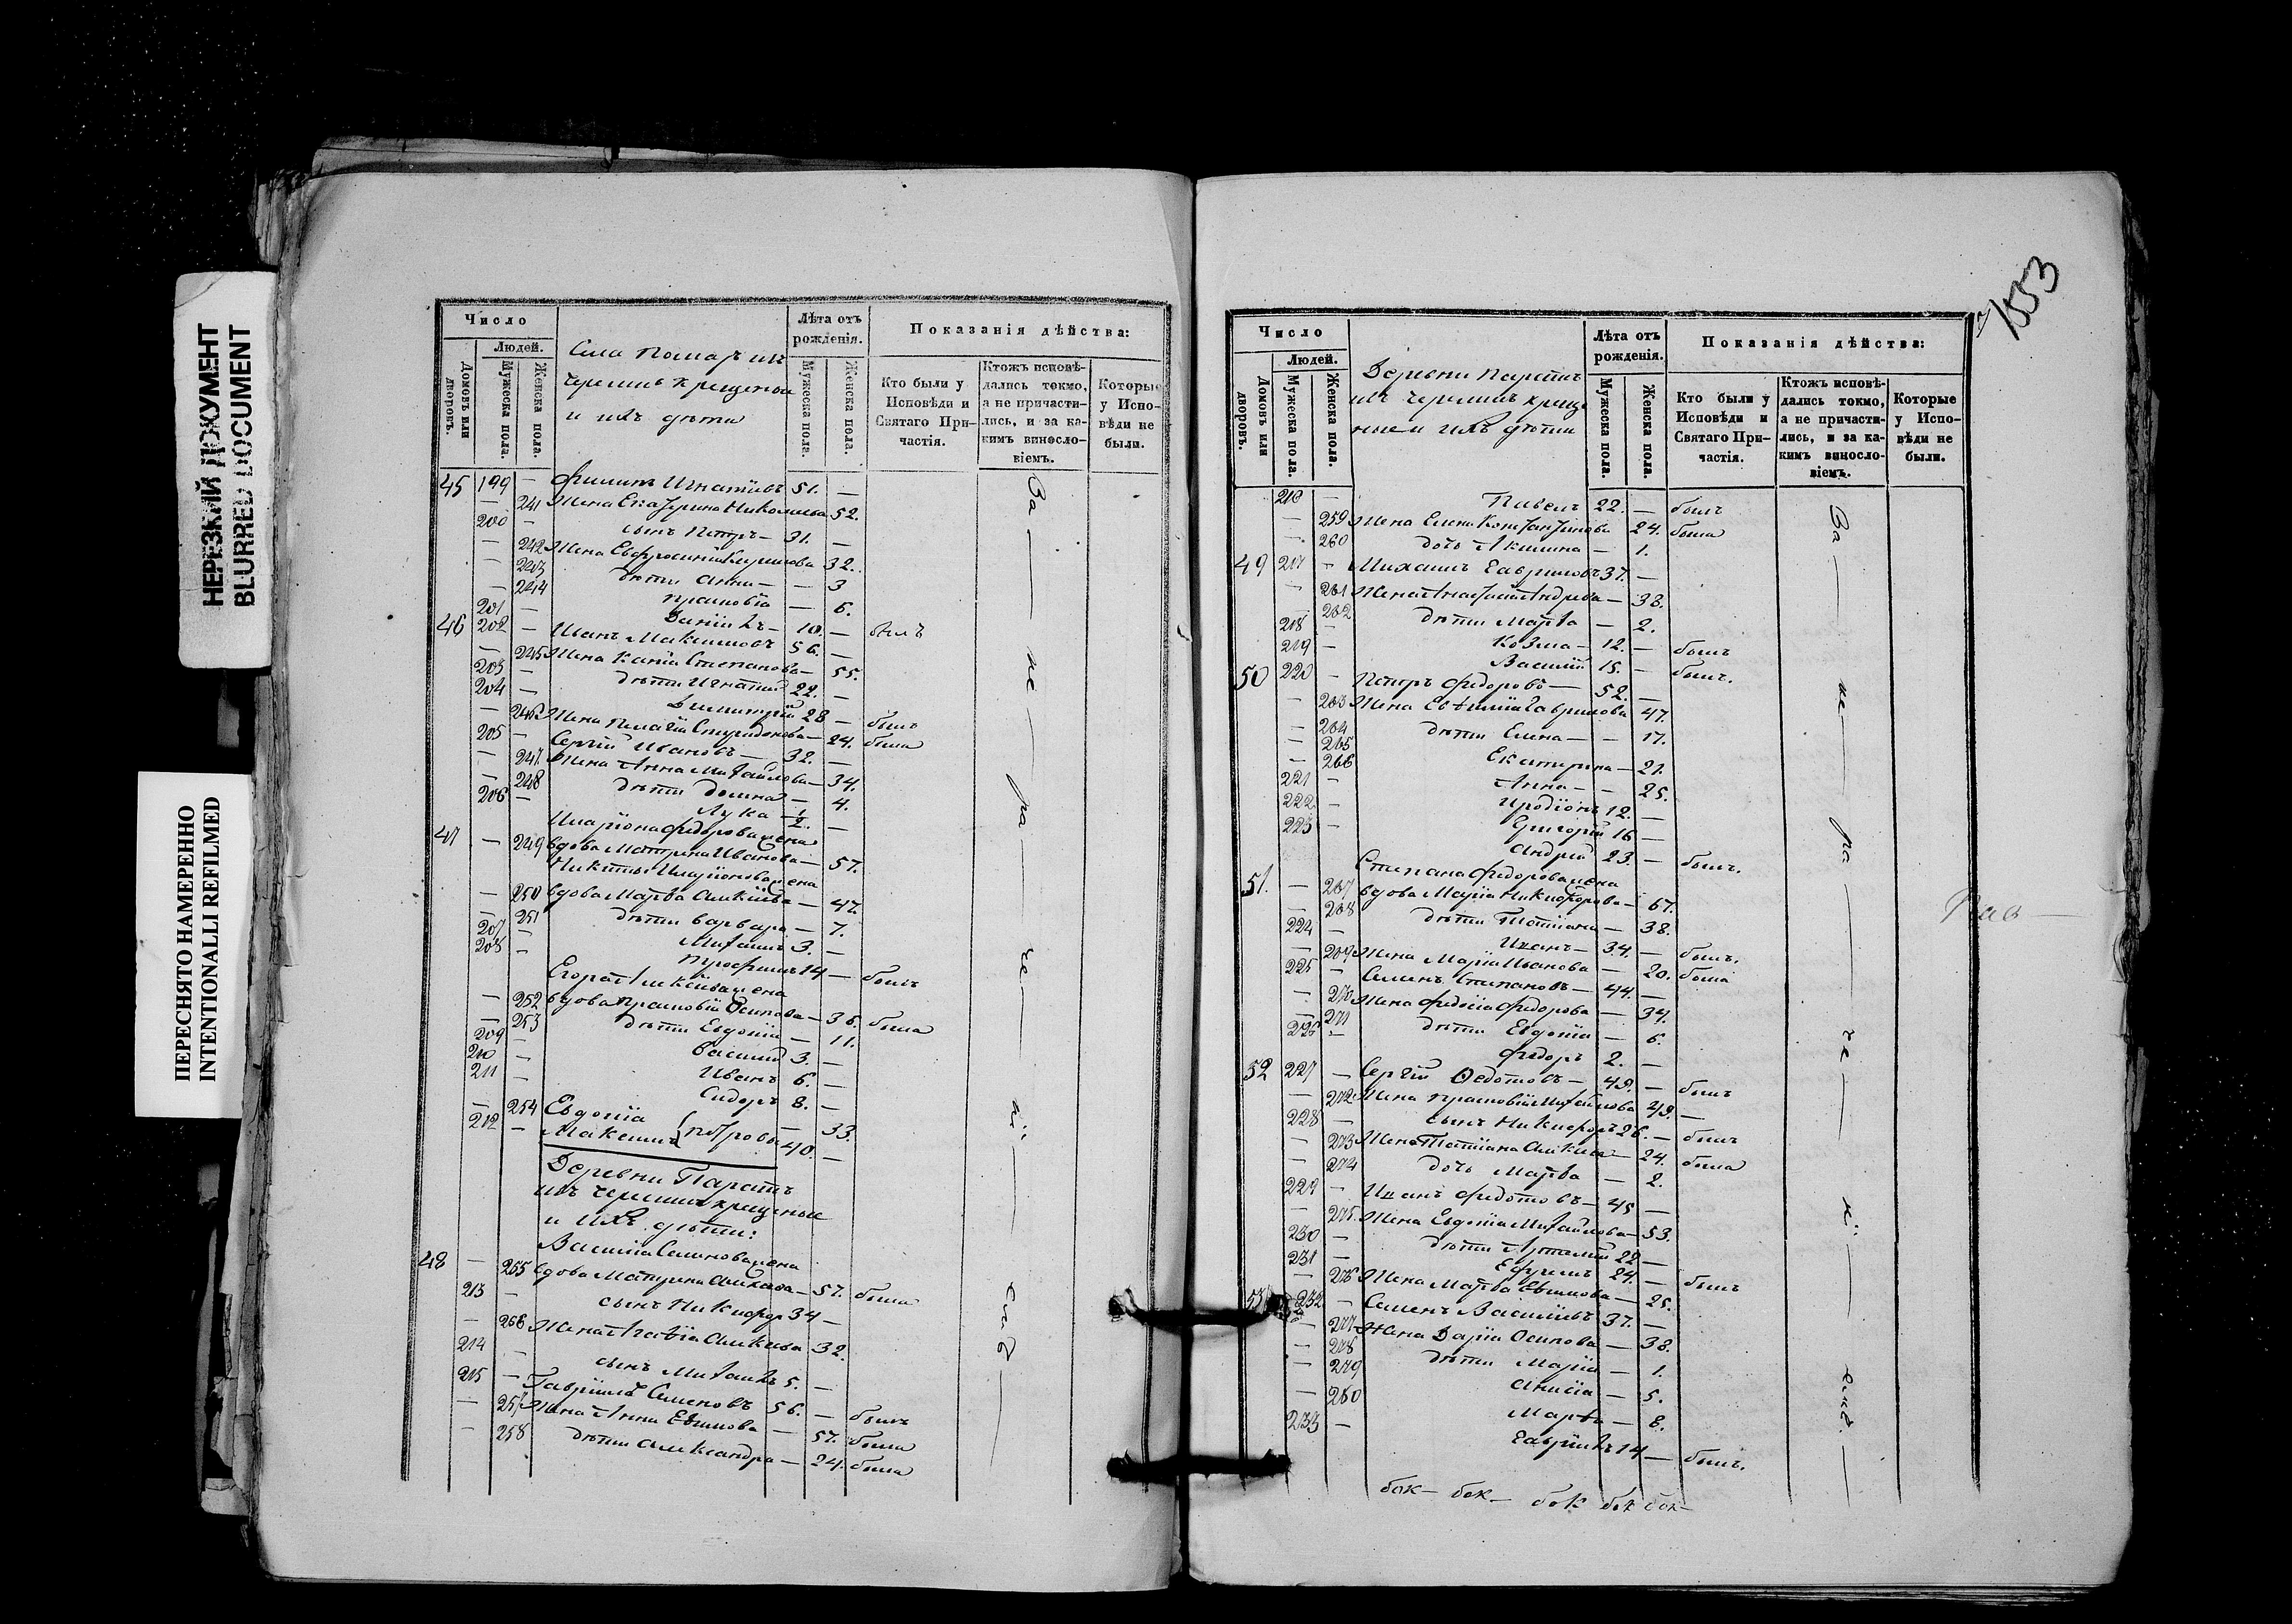 НЕРЕЗКИЙ ДОКУМЕНТ
BLURRED DOCUMENT
ПЕРЕСНЯТО НАМЕРЕННО
INTENTIONALLI REFILMED
Число
Людей.
Домовъ или дворовъ.
Мужеска пола.
Женска пола.
Села Помаръ изъ
черемисъ крещеные
и ихъ дѣти
Лѣта отъ рожденія.
Мужеска пола.
Женска пола.
Показанія дѣйства:
Кто были у Исповѣди и Святаго Причастія.
Ктожъ исповѣдались токмо, а не причастились, и за какимъ винословіемъ.
Которые у Исповѣди не были.
45 199 — Филипъ Игнатіевъ 51. —
— 241 Жена Екатерина Николаева 52.
200 — сынъ Петръ — 31. —
— 242 Жена Евфросинія Кирилова 32.
— 243 дѣти Анна — — 3
— 244 Прасковія — 6.
201 — Даніилъ — 10. — былъ
46 202 — Иванъ Максимовъ 56. —
— 245 Жена Степанова — 55.
203 — дѣти Игнатій 22. —
204 — Димитрій 28 — былъ
— 246 Жена Пелагія Спиридонова — 24. была
205 — Сергій Ивановъ — 32. —
— 247 Жена Анна Михайлова — 34.
— 248 дѣти Домна — 4.
206 — Лука — 1/2. —
Иларіона Федорова жена
47 — 249 вдова Матрена Иванова — 57.
Никиты Иларіонова жена
— 250 вдова Марѳа Алексіева — 47.
— 251 дѣти Варвара — 7.
207 — Михаилъ 3. —
208 — Трофимъ 14 — былъ
Егора Алексіева жена
— 252 вдова Прасковія Осипова — 36. была
— 253 дѣти Евдокія — 11.
209 — Василій 3. —
210 — Иванъ 6. —
211 — Сидоръ 8. —
— 254 Евдокія — 33.
212 — Максимъ Петровы 40. —
Деревни Паратъ
изъ черемисъ крещеные
и ихъ дѣти:
Василія Семенова жена
48 — 255 вдова Матрена — 57. была
213 — сынъ Никифоръ 34 —
— 256 Жена Агафія Алексіева 32.
214 — сынъ Михаилъ 5. —
215 — Гавріилъ Семеновъ 56. — былъ
— 257 Жена Анна Евѳимова — 57. была
— 258 дѣти Александра — 24. была
За — не — ра — че — —
1553
Число
Людей.
Домовъ или дворовъ.
Мужеска пола.
Женска пола.
Деревни Паратъ
изъ черемисъ креще
ные и ихъ дѣти
Лѣта отъ рожденія.
Мужеска пола.
Женска пола.
Показанія дѣйства:
Кто были у Исповѣди и Святаго Причастія.
Ктожъ исповѣдались токмо, а не причастились, и за какимъ винословіемъ.
Которые у Исповѣди не были.
216 — Павелъ 22. — былъ
— 259 Жена Елена Константинова 24. была
— 260 дочь Акилина — 1.
49 217 — Михаилъ Гавриловъ 37. —
— 261 Жена Анастасія Андреева — 38.
— 262 дѣти Марѳа — 2.
218 — Козма — 12. — былъ
219 — Василій 15. — былъ.
50 220 — Петръ Федоровъ — 52. —
— 263 Жена Евѳимія Гаврилова 47.
— 264 дѣти Елена — — 17.
— 265 Екатерина — 21.
— 266 Анна — — 25.
221 — Иродіонъ 12. —
222 — Григорій 16 —
223 — Андрей 23. — былъ.
Степана Федорова жена
51. — 267 вдова Марія Никифорова — 67.
— 268 дѣти Татіана — 38.
224 — Иванъ — 34. — былъ.
— 269 Жена Марія Иванова — 20. была
225 — Семенъ Степановъ — 44. —
— 270 Жена Федосія Федорова — 34.
— 271 дѣти Евдокія — 6.
226 — Федоръ 2. —
52 227 — Сергій Ѳедотовъ — 49. — былъ
— 272 Жена Прасковія Михайлова 49. —
228 — сынъ Никифоръ 26. — былъ
— 273 Жена Татіана Алексіева — 24. была
— 274 дочь Марѳа — 2.
229 — Иванъ Федотовъ — 45 —
— 275 Жена Евдокія Михайлова — 53.
230 — дѣти Артемій 22 —
231 — Ефремъ 24. — былъ
— 276 Жена Марѳа Евѳимова — 25.
53 232 — Семенъ Василіевъ 37. —
— 277 Жена Дарія Осипова — 38.
— 278 дѣти Марія — 1.
— 279 Анисія — 5.
— 280 Марѳа — 8.
233 — Гавріилъ 14 — былъ.
За — не — ра — че — —
бок — бок — бок бок бок —